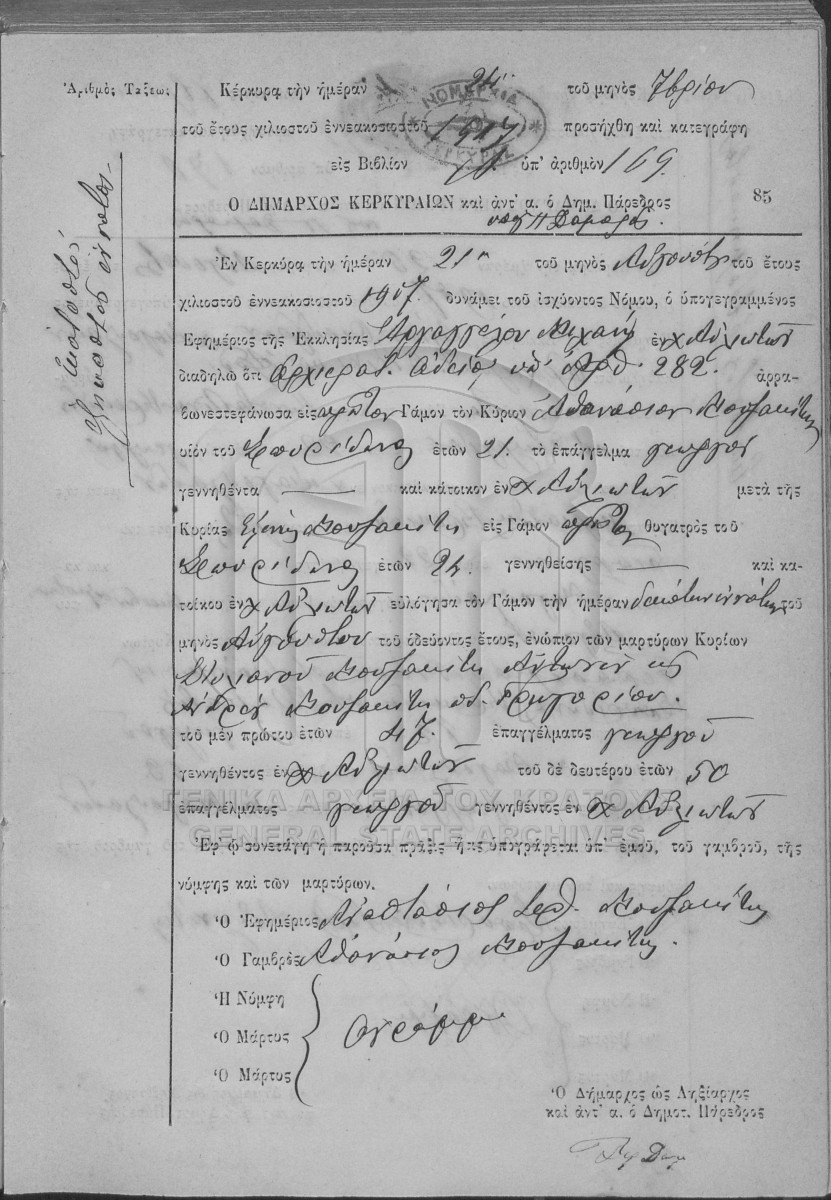 Ἀριθμὸς Τάξεως
Κέρκυρα τὴν ἡμέραν 24 τοῦ μηνὸς 7βρίου
τοῦ ἔτους χιλιοστοῦ ἐννεακοσιοστοῦ 1907 προσήχθη καὶ κατεγράφη
εἰς Βιβλίον ὑπ' ἀριθμὸν 169.
Ο ΔΗΜΑΡΧΟΣ ΚΕΡΚΥΡΑΙΩΝ καὶ ἀντ' α. ὁ Δημ. Πάρεδρος
85
ΝΟΜΑΡΧΙΑ ΚΕΡΚΥΡΑΣ
Ἐν Κερκύρᾳ τὴν ἡμέραν 21 τοῦ μηνὸς Αὐγούστου τοῦ ἔτους
χιλιοστοῦ ἐννεακοσιοστοῦ 1907 δυνάμει τοῦ ἰσχύοντος Νόμου, ὁ ὑπογεγραμμένος
Ἐφημέριος τῆς Ἐκκλησίας Ἀρχαγγέλου Μιχαὴλ ἐν χ Αὐλιωτῶν
διαδηλῶ ὅτι ἀρχιερατ. ἀδείᾳ ὑπ' ἀριθ. 282. ἀρρα-
βωνεστεφάνωσα εἰς πρῶτον Γάμον τὸν Κύριον Ἀθανάσιον Μουζακίτην
υἱὸν τοῦ Σπυρίδωνος ἐτῶν 21. τὸ ἐπάγγελμα γεωργὸν
γεννηθέντα — καὶ κάτοικον ἐν χ Αὐλιωτῶν μετὰ τῆς
Κυρίας Εἰρήνης Μουζακίτη εἰς Γάμον πρῶτον θυγατρὸς τοῦ
Σπυρίδωνος ἐτῶν 24. γεννηθείσης — καὶ κα-
τοίκου ἐν χ Αὐλιωτῶν εὐλόγησα τὸν Γάμον τὴν ἡμέραν δεκάτην ἐννάτην τοῦ
μηνὸς Αὐγούστου τοῦ ὁδεύοντος ἔτους, ἐνώπιον τῶν μαρτύρων Κυρίων
Στυλιανοῦ Μουζακίτη Ἀντωνίου κ
Ἀνδρέου Μουζακίτη Γρηγορίου.
τοῦ μὲν πρώτου ἐτῶν 47. ἐπαγγέλματος γεωργοῦ
γεννηθέντος ἐν χ Αὐλιωτῶν τοῦ δὲ δευτέρου ἐτῶν 50
ἐπαγγέλματος γεωργοῦ γεννηθέντος ἐν χ Αὐλιωτῶν
ΓΕΝΙΚΑ ΑΡΧΕΙΑ ΤΟΥ ΚΡΑΤΟΥΣ
GENERAL STATE ARCHIVES
Ἐφ' ᾧ συνετάγη ἡ παροῦσα πρᾶξις ἥτις ὑπογράφεται ὑπ' ἐμοῦ, τοῦ γαμβροῦ, τῆς
νύμφης καὶ τῶν μαρτύρων.
Ὁ Ἐφημέριος Ἀναστάσιος Ἱερ. Μουζακίτης
Ὁ Γαμβρὸς Ἀθανάσιος Μουζακίτης.
Ἡ Νύμφη
Ὁ Μάρτυς ἀγράμμ
Ὁ Μάρτυς
Ὁ Δήμαρχος ὡς Ληξίαρχος
καὶ ἀντ' α. ὁ Δημοτ. Πάρεδρος